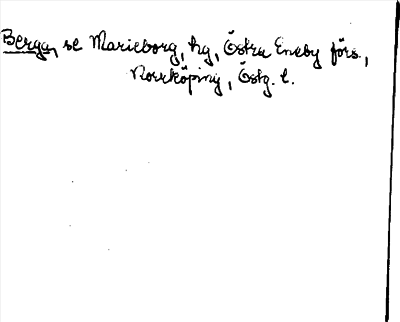 Berga, se Marieborg, hg, Östra Eneby förs.,
Norrköping, Östg. l.